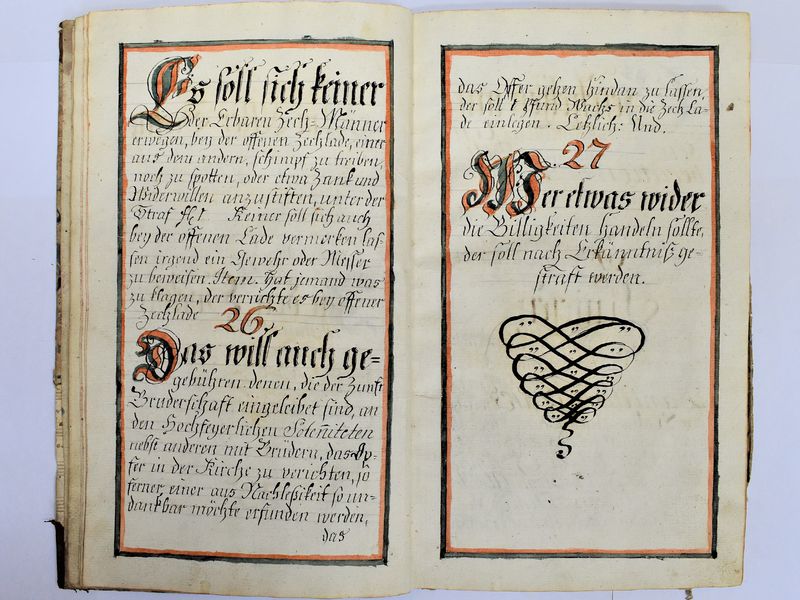 Es soll sich keiner
der Erbaren Zech-Männer
erwegen, bey der offenen Zechlade, einer
aus dem andern, schimpf zu treiben,
noch zu spotten, oder etwa Zank und
Widerwillen anzustiften, unter der
Straf Keiner soll sich auch
bey der offenen Lade vermerken las-
sen irgend ein Gewehr oder Messer
zu beweisen. Item. hat jemand was
zu klagen, der verrichte es bey offener
Zechlade
26.
Das will auch ge=
gebühren denen, die der Zunft
Bruderschaft eingeleibet sind, an
den Hochfeyerlichen Solenniteten
nebst anderen mit Brüdern, das Op-
fer in der Kirche zu verichten, so
ferner einer aus Nachleßikeit so un-
dankbar möchte erfunden werden,
das
das Opfer gehen hindan zu lassen,
der soll 1 Pfund Wachs in die Zech La-
de einlegen. Letzlich: Und.
27
Wer etwas wider
die Billigkeiten handeln sollte,
der soll nach Erkänntniß ge-
straft werden.